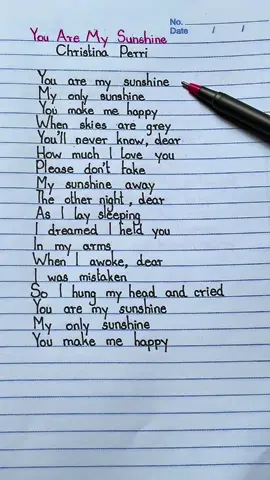 No.
Date / /
You Are My Sunshine
Christina Perri
You are my sunshine
My only sunshine
You make me happy
When skies are grey
You'll never know, dear
How much I love you
Please don't take
My sunshine away
The other night, dear
As I lay sleeping
I dreamed I held you
In my arms
When I awoke, dear
I was mistaken
So I hung my head and cried
You are my sunshine
My only sunshine
You make me happy